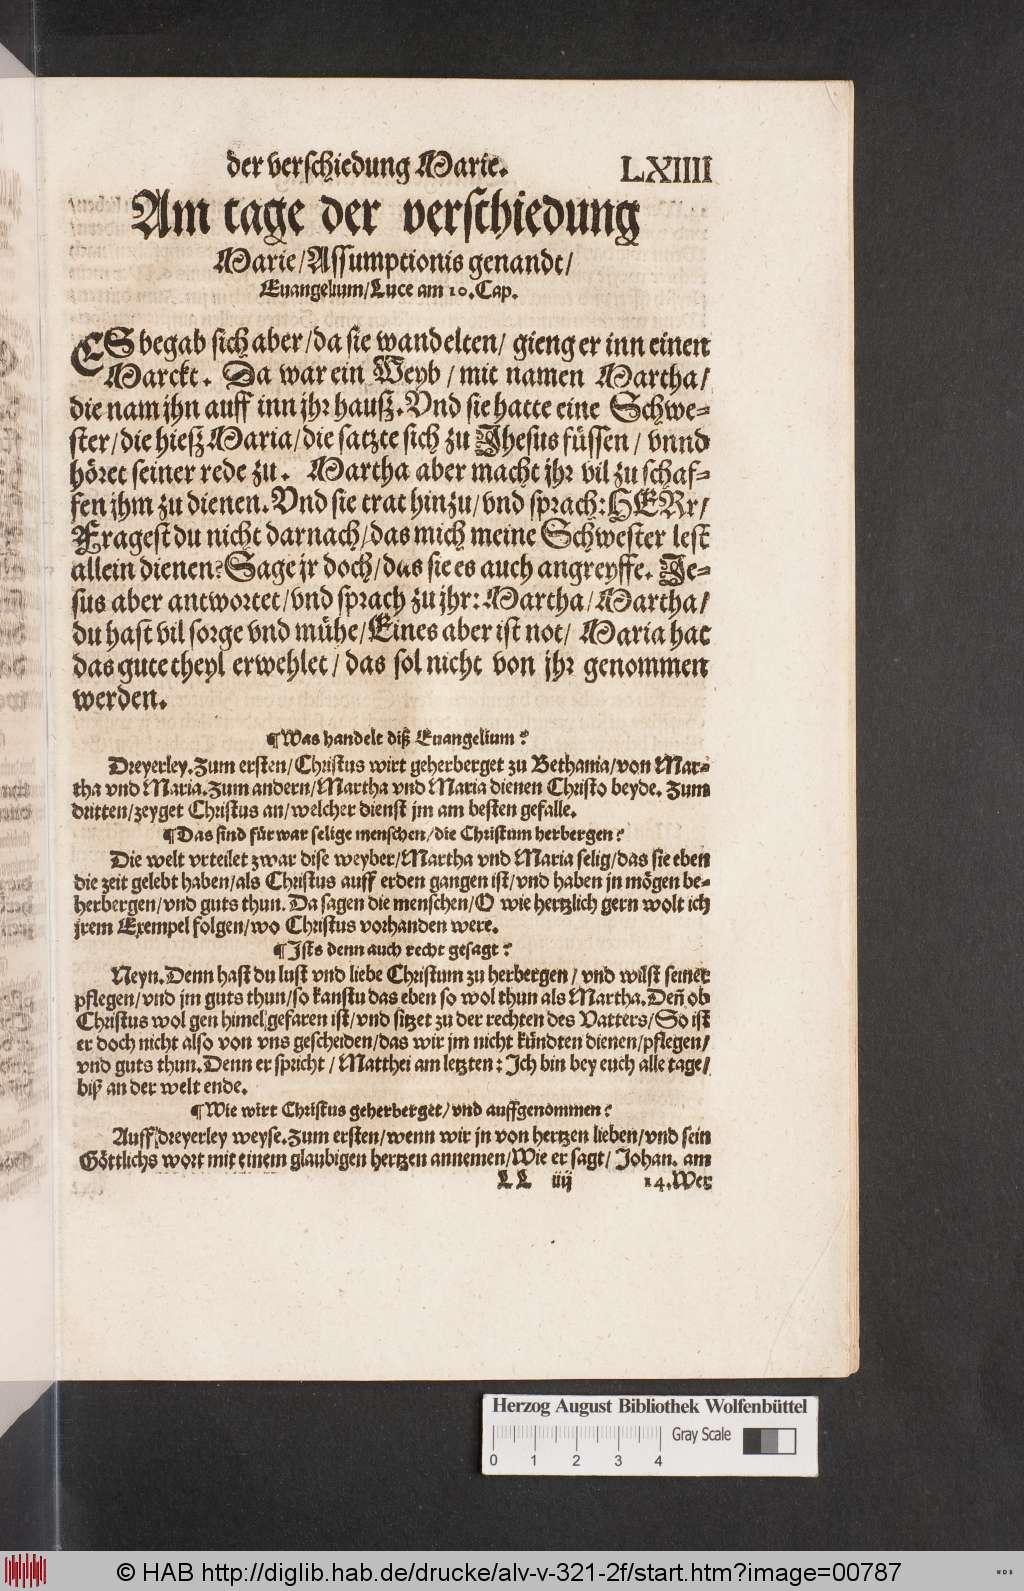 der verschiedung Marie. LXIIII
Am tage der verschiedung
Marie/Assumptionis genandt/
Euangelium/Luce am 10.Cap.
ES begab sich aber/da sie wandelten/ gieng er inn einen
Marckt. Da war ein Weyb/mit namen Martha/
die nam jhn auff inn jhr hauß.Vnd sie hatte eine Schwe-
ster/die hieß Maria/die satzte sich zu Jhesus füssen/ vnnd
höret seiner rede zu. Martha aber macht jhr vil zu schaf-
fen jhm zu dienen.Vnd sie trat hinzu/vnd sprach:HERr/
Fragest du nicht darnach/das mich meine Schwester lest
allein dienen?Sage jr doch/das sie es auch angreyffe. Je-
sus aber antwortet/vnd sprach zu jhr:Martha/Martha/
du hast vil sorge vnd mühe/Eines aber ist not/ Maria hat
das gute theyl erwehlet/das sol nicht von jhr genommen
werden.
¶Was handelt diß Euangelium?
Dreyerley.Zum ersten/Christus wirt geherberget zu Bethania/von Mar-
tha vnd Maria.Zum andern/Martha vnd Maria dienen Christo beyde. Zum
dritten/zeyget Christus an/welcher dienst jm am besten gefalle.
¶Das sind fürwar selige menschen/die Christum herbergen?
Die welt vrteilet zwar dise weyber/Martha vnd Maria selig/das sie eben
die zeit gelebt haben/als Christus auff erden gangen ist/vnd haben jn mögen be-
herbergen/vnd guts thun. Da sagen die menschen/O wie hertzlich gern wolt ich
jrem Exempel folgen/wo Christus vorhanden were.
¶Ists denn auch recht gesagt?
Neyn.Denn hast du lust vnd liebe Christum zu herbergen/ vnd wilst seiner
pflegen/vnd jm guts thun/so kanstu das eben so wol thun als Martha.Deñ ob
Christus wol gen himel gefaren ist/vnd sitzet zu der rechten des Vatters/So ist
er doch nicht also von vns gescheiden/das wir jm nicht kündten dienen/pflegen/
vnd guts thun.Denn er spricht/Matthei am letzten:Ich bin bey euch alle tage/
biß an der welt ende.
¶Wie wirt Christus geherberget/vnd auffgenommen?
Auff dreyerley weyse.Zum ersten/wenn wir jn von hertzen lieben/vnd sein
Göttlichs wort mit einem glaubigen hertzen annemen/Wie er sagt/ Johan. am
LL iiij 14.Wer
Herzog August Bibliothek Wolfenbüttel
Gray Scale
0 1 2 3 4
© HAB http://diglib.hab.de/drucke/alv-v-321-2f/start.htm?image=00787